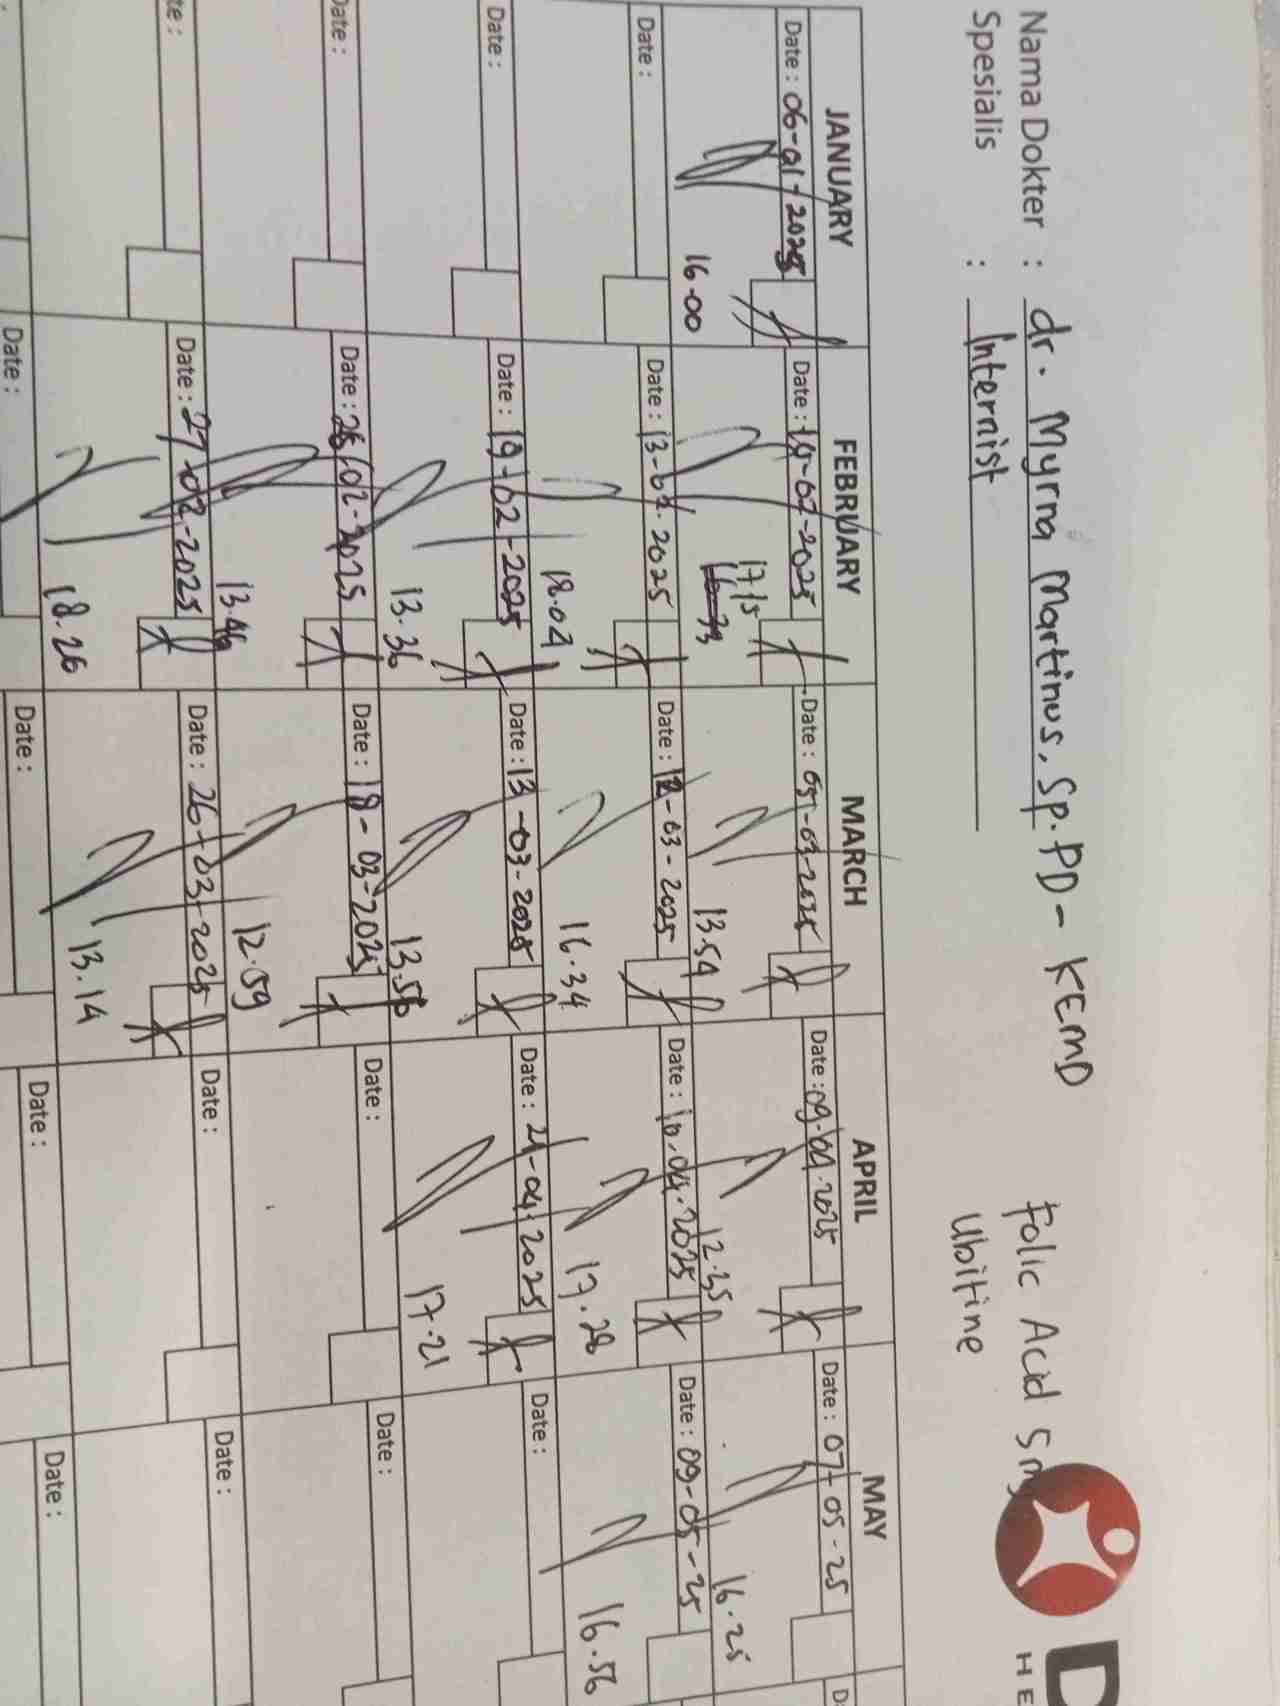 Nama Dokter : dr. Myrna Martinus, Sp.PD - KEMD
Folic Acid 5 mg
Spesialis : Internist
Ubitine
D
HE
JANUARY FEBRUARY MARCH APRIL MAY
Date : 06-01-2025
16.00
Date : -02-2025
17.15
Date : 05-03-2025
13.54
Date : 09.04.2025
12.35
Date : 07-05-25
16.25
D
Date :
Date : 13-02-2025
18.04
Date : 12-03-2025
16.34
Date : 10.04.2025
17.28
Date : 09-05-25
16.56
Date :
Date : 19-02-2025
13.36
Date : 13-03-2025
13.56
Date : 21-04-2025
17.21
Date :
Date :
Date : 26-02-2025
13.46
Date : 18-03-2025
12.59
Date :
Date :
te :
Date : 27-02-2025
18.26
Date : 26-03-2025
13.14
Date :
Date :
Date :
Date :
Date :
Date :